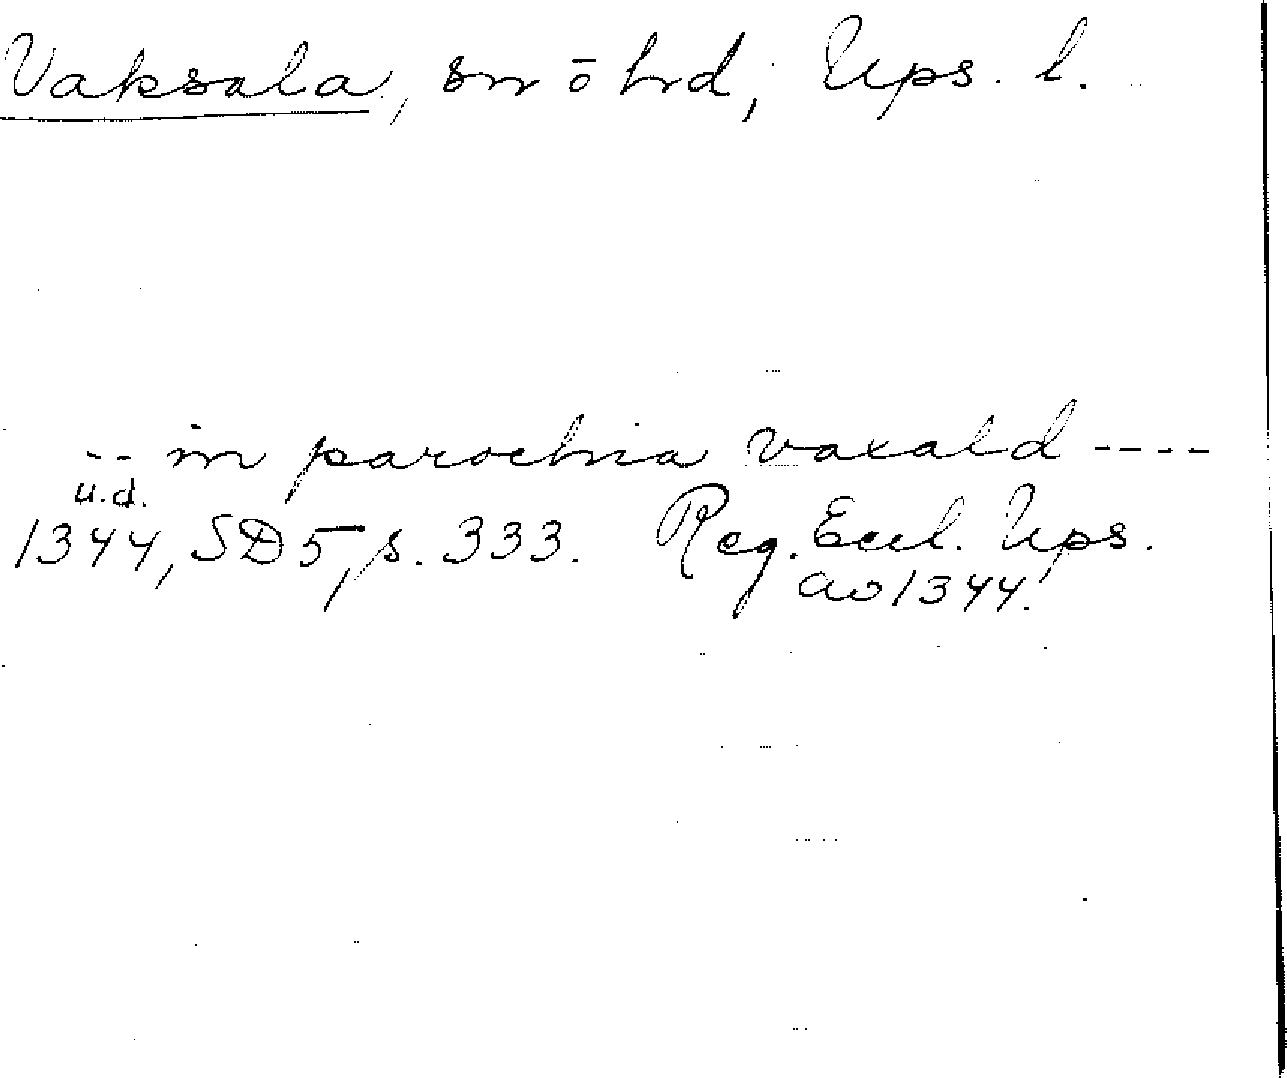 Vaksala, sn ō hd, Ups. l.
-- in parochia vaxald ----
u.d.
1344, SD 5, s. 333. Reg. Eccl. Ups.
ao 1344.